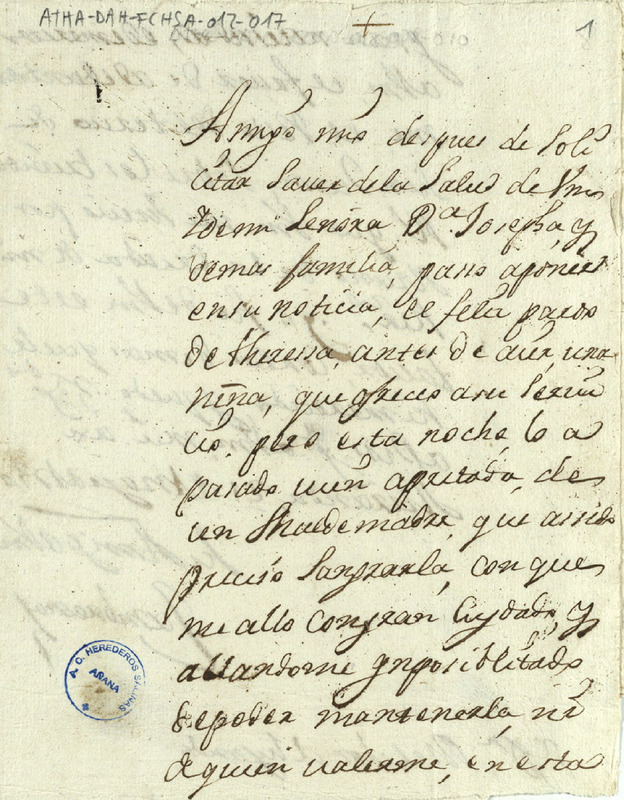 ATHA-DAH-FCHSA-012-017
1
Amigo mio despues de soli
citar saver de la Salud de Vm
y de mi Señora Dª Josepha, y
demas familia, passo aponer
en su noticia, el feliz parto
de theressa, antes de aier, una
niña, que ofrezco a su servi
cio. pero esta noche lo a
pasado uien apretada, de
un Maldemadre, que assido
preciso Sangrarla, con que
me allo con gran Cuydado, y
allandome ynposiblitado
de poder mantenerla, ni
de quien ualerme, en esta
A. C. HEREDEROS SALINAS
ARANA